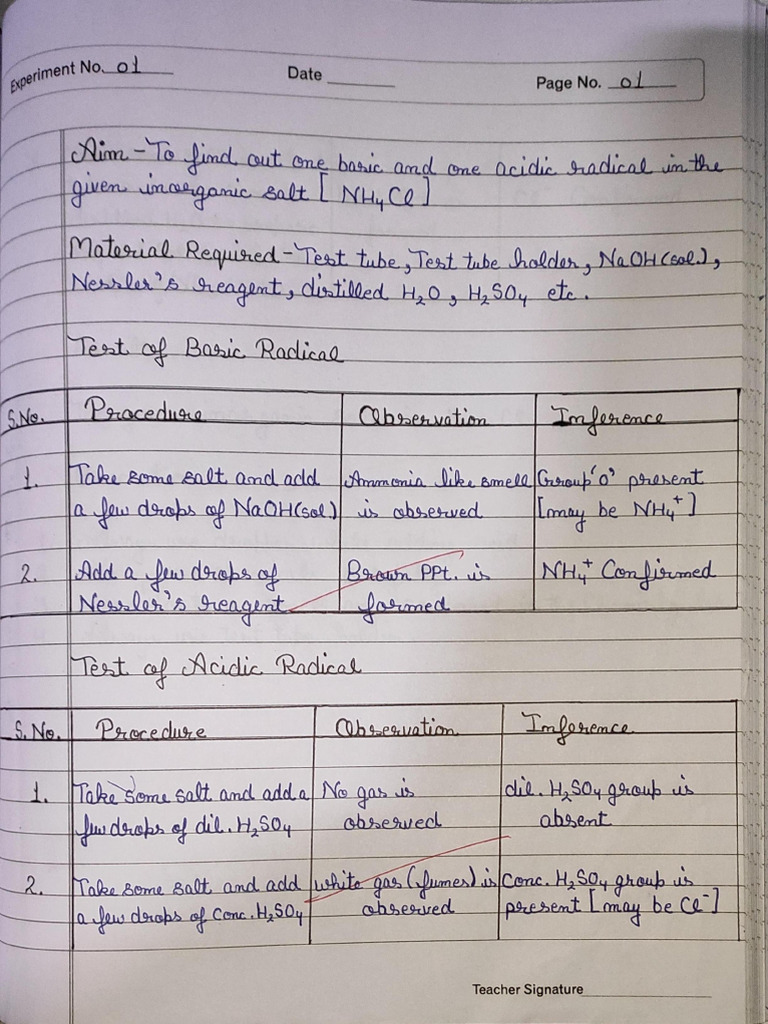 Experiment No. 01 Date Page No. 01
Aim - To find out one basic and one acidic radical in the
given inorganic salt [ NH₄Cl ]
Material Required - Test tube, Test tube holder, NaOH(sol.),
Nessler's reagent, distilled H₂O, H₂SO₄ etc.
Test of Basic Radical
S.No. Procedure Observation Inference
1. Take some salt and add Ammonia like smell Group 'o' present
a few drops of NaOH(sol) is observed [may be NH₄⁺]
2. Add a few drops of Brown PPt. is NH₄⁺ Confirmed
Nessler's reagent formed
Test of Acidic Radical
S. No. Procedure Observation Inference
1. Take some salt and add a No gas is dil. H₂SO₄ group is
few drops of dil. H₂SO₄ observed absent
2. Take some salt and add white gas (fumes) is Conc. H₂SO₄ group is
a few drops of Conc. H₂SO₄ observed present [may be Cl⁻]
Teacher Signature